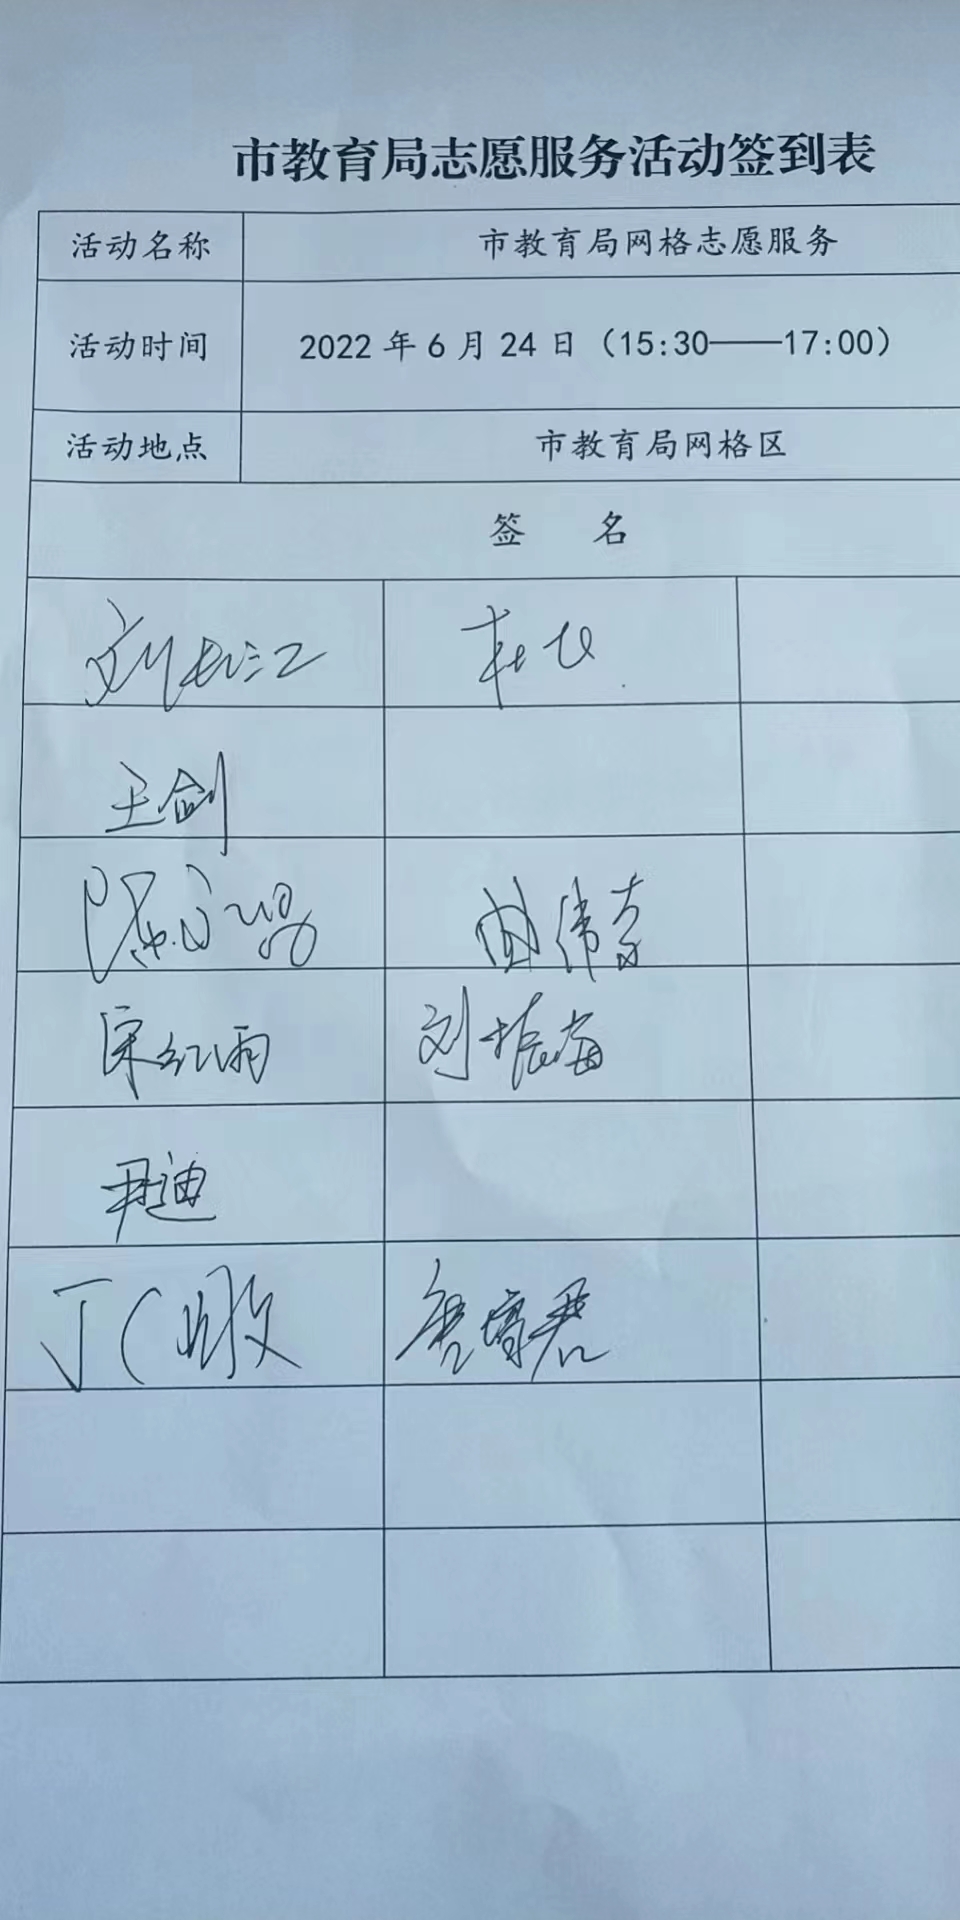 市教育局志愿服务活动签到表
活动名称 市教育局网格志愿服务
活动时间 2022年6月24日（15:30——17:00）
活动地点 市教育局网格区
签 名
刘长江
王剑
曲伟
宋红雨 刘振海
尹迪
丁